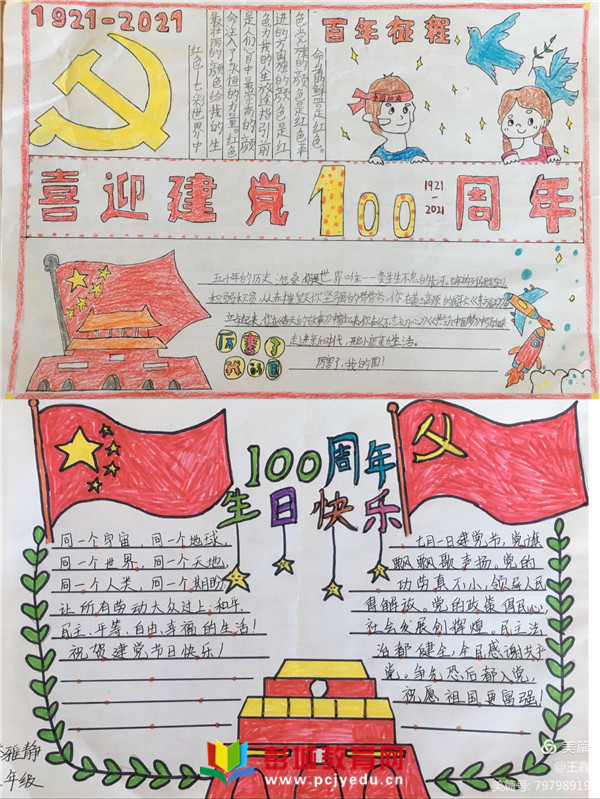 1921-2021
百年征程
命有的鲜血是红色。
色党旗的颜色是红色革
进的方国旗的颜色是红
色为我的人生旅途指引前
是人们心目中最崇高的颜
命注入了永恒的力量。红色
最壮丽的颜色给我的生
红色——七彩世界中
喜迎建党100周年
1921
-
2021
走进新时代,开创
生活。
厉害了,我的国!
厉害了
我的国
100周年
生日快乐
同一个宇宙,同一个地球,
同一个世界,同一个天地,
同一个人类,同一个期盼
让所有劳动大众过上和平、
民主、平等、自由、幸福的生活!
祝贺建党节日快乐!
七月一日建党节,党旗
飘飘歌声扬。党的
功劳真不小,领导人民
得解放。党的政策得民心,
社会发展创辉煌。民主法
治都健全,全民感谢共产
党。争先恐后都入党,
祝愿祖国更富强!
雅静
年级
彭城教育网
www.pcjyedu.cn
美篇
@王鑫
美篇号: 79798919